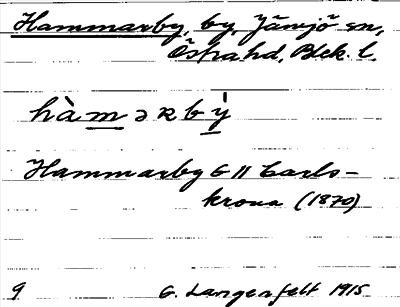 Hammarby, by, Jämjö sn,
Östra hd, Blek. l.
hàmərbý
Hammarby G 11 Carls-
krona (1870)
9 G. Langenfelt 1915.